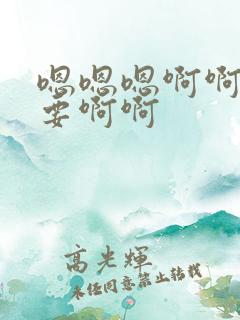 嗯嗯嗯啊啊
要啊啊
高光辉
未经同意禁止转载